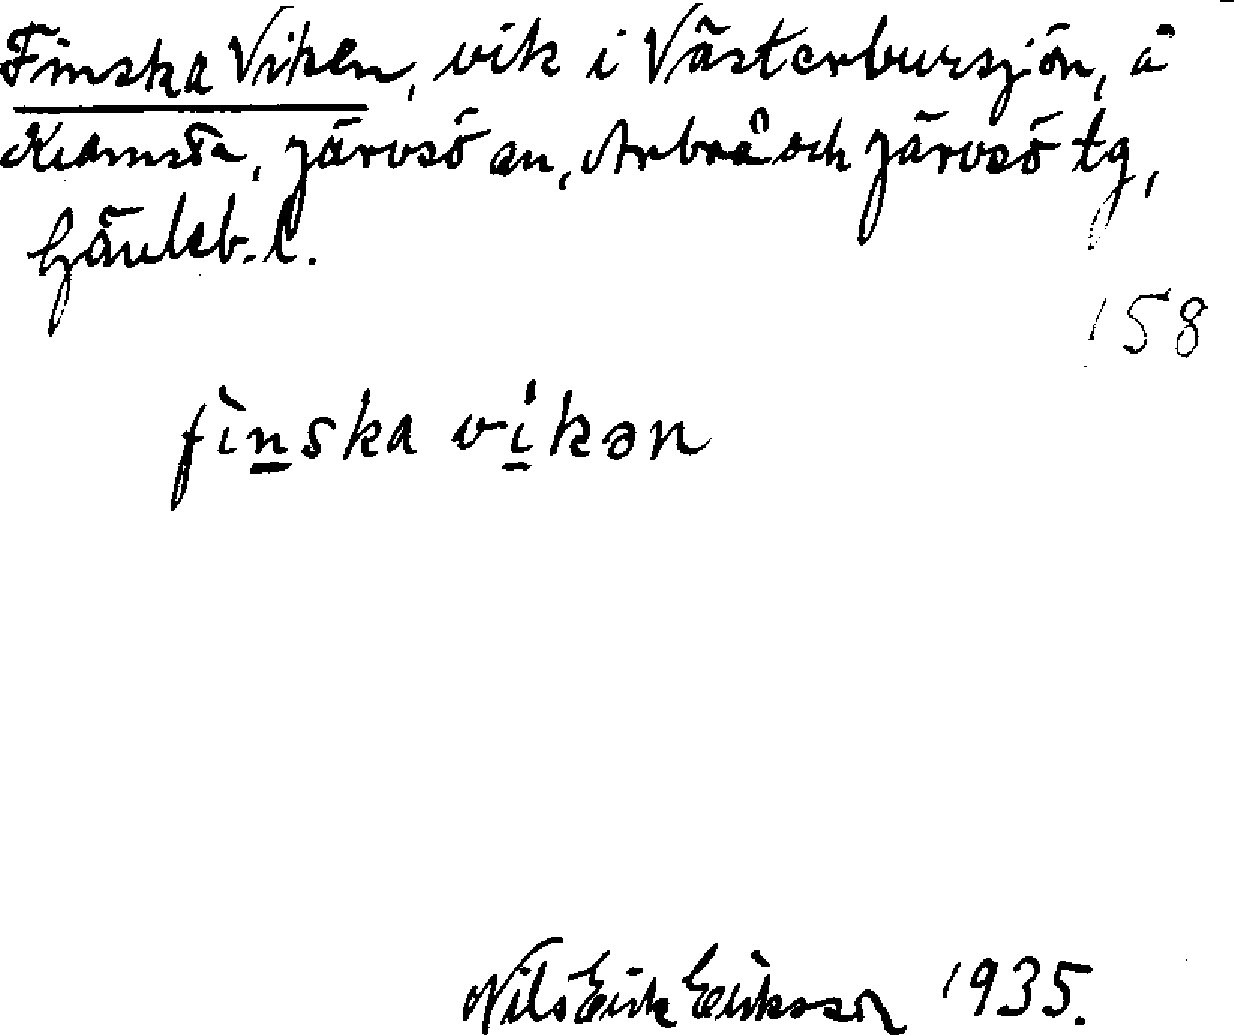 Finska Viken, vik i Västerbursjön, å
Kramsta, Järvsö sn, Arbrå och Järvsö tg,
Gävleb. l.
158
fìnska víkən
Nils Erik Eriksson 1935.